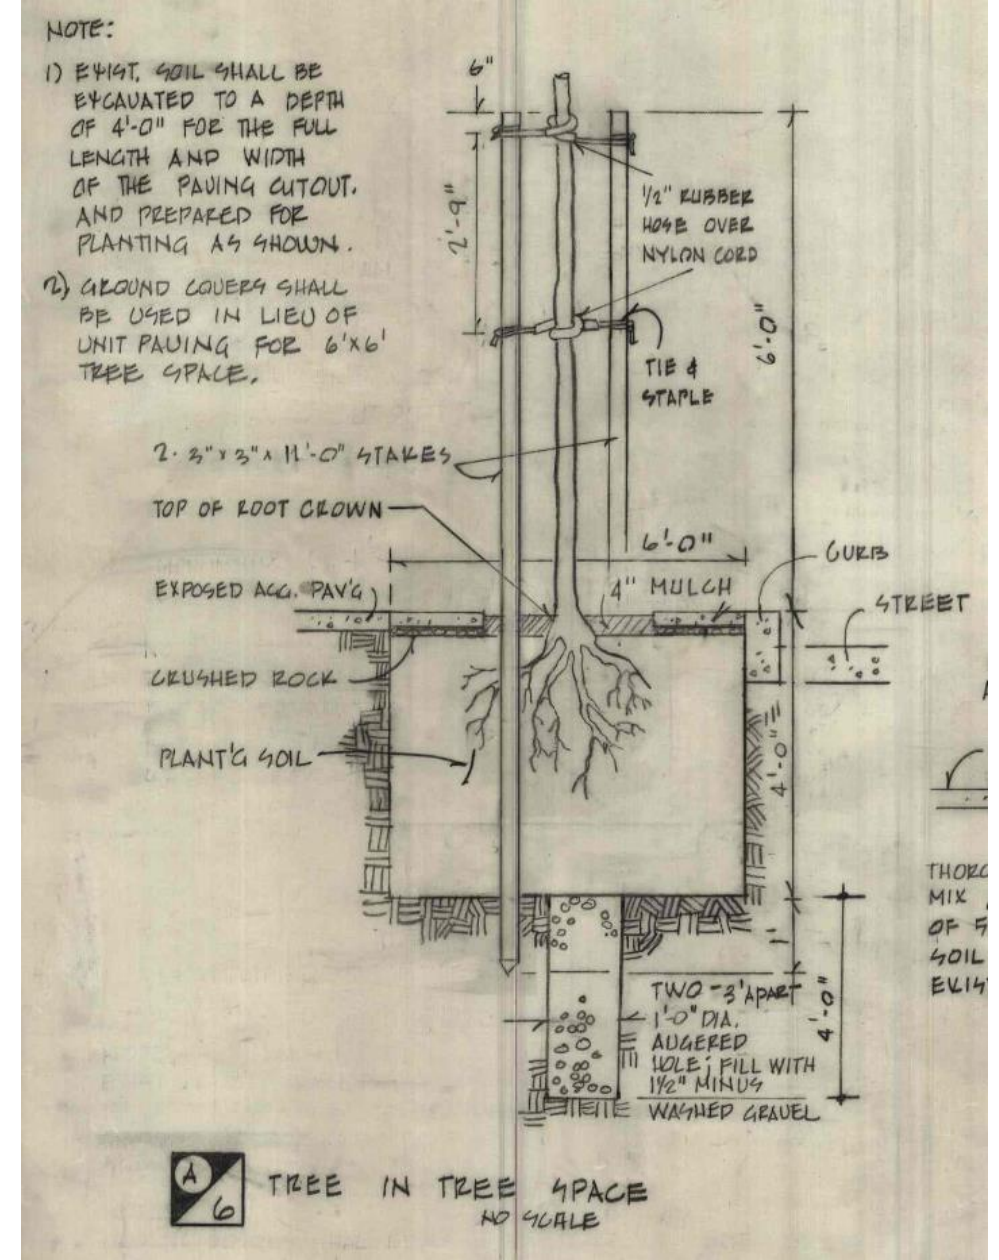 NOTE:
1) EXIST. SOIL SHALL BE
EXCAVATED TO A DEPTH
OF 4'-0" FOR THE FULL
LENGTH AND WIDTH
OF THE PAVING CUTOUT.
AND PREPARED FOR
PLANTING AS SHOWN.
2) GROUND COVERS SHALL
BE USED IN LIEU OF
UNIT PAVING FOR 6'X6'
TREE SPACE.
6"
2'-9"
1/2" RUBBER
HOSE OVER
NYLON CORD
6'-0"
TIE &
STAPLE
2-3"x3"x11'-0" STAKES
TOP OF ROOT CROWN
6'-0"
CURB
EXPOSED AGG. PAV'G
4" MULCH
STREET
CRUSHED ROCK
PLANT'G SOIL
4'-0"
1'
THORO
MIX
OF 5
SOIL
EXIST
TWO-3'APART
1'-0" DIA.
AUGERED
HOLE; FILL WITH
1 1/2" MINUS
WASHED GRAVEL
4'-0"
A
6
TREE IN TREE SPACE
NO SCALE